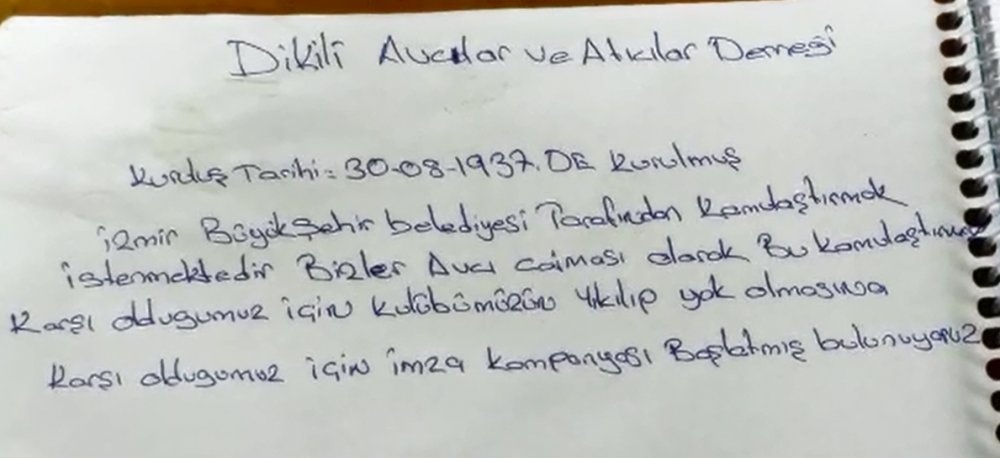 Dikili Avcılar ve Atıcılar Derneği
Kuruluş Tarihi: 30-08-1937.DE Kurulmuş
izmir Büyükşehir belediyesi Tarafından Kamulaştırmak
istenmektedir Bizler Avcı camiası olarak Bu kamulaştırmaya
Karşı oldugumuz için kulübümüzün Yıkılıp yok olmasına
Karşı oldugumuz için imza kampanyası Başlatmış bulunuyoruz